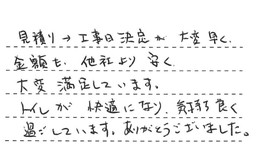 見積り→工事日決定が大変早く、
金額も、他社より安く、
大変満足しています。
トイレが快適になり、気持ち良く
過ごしています。ありがとうございました。